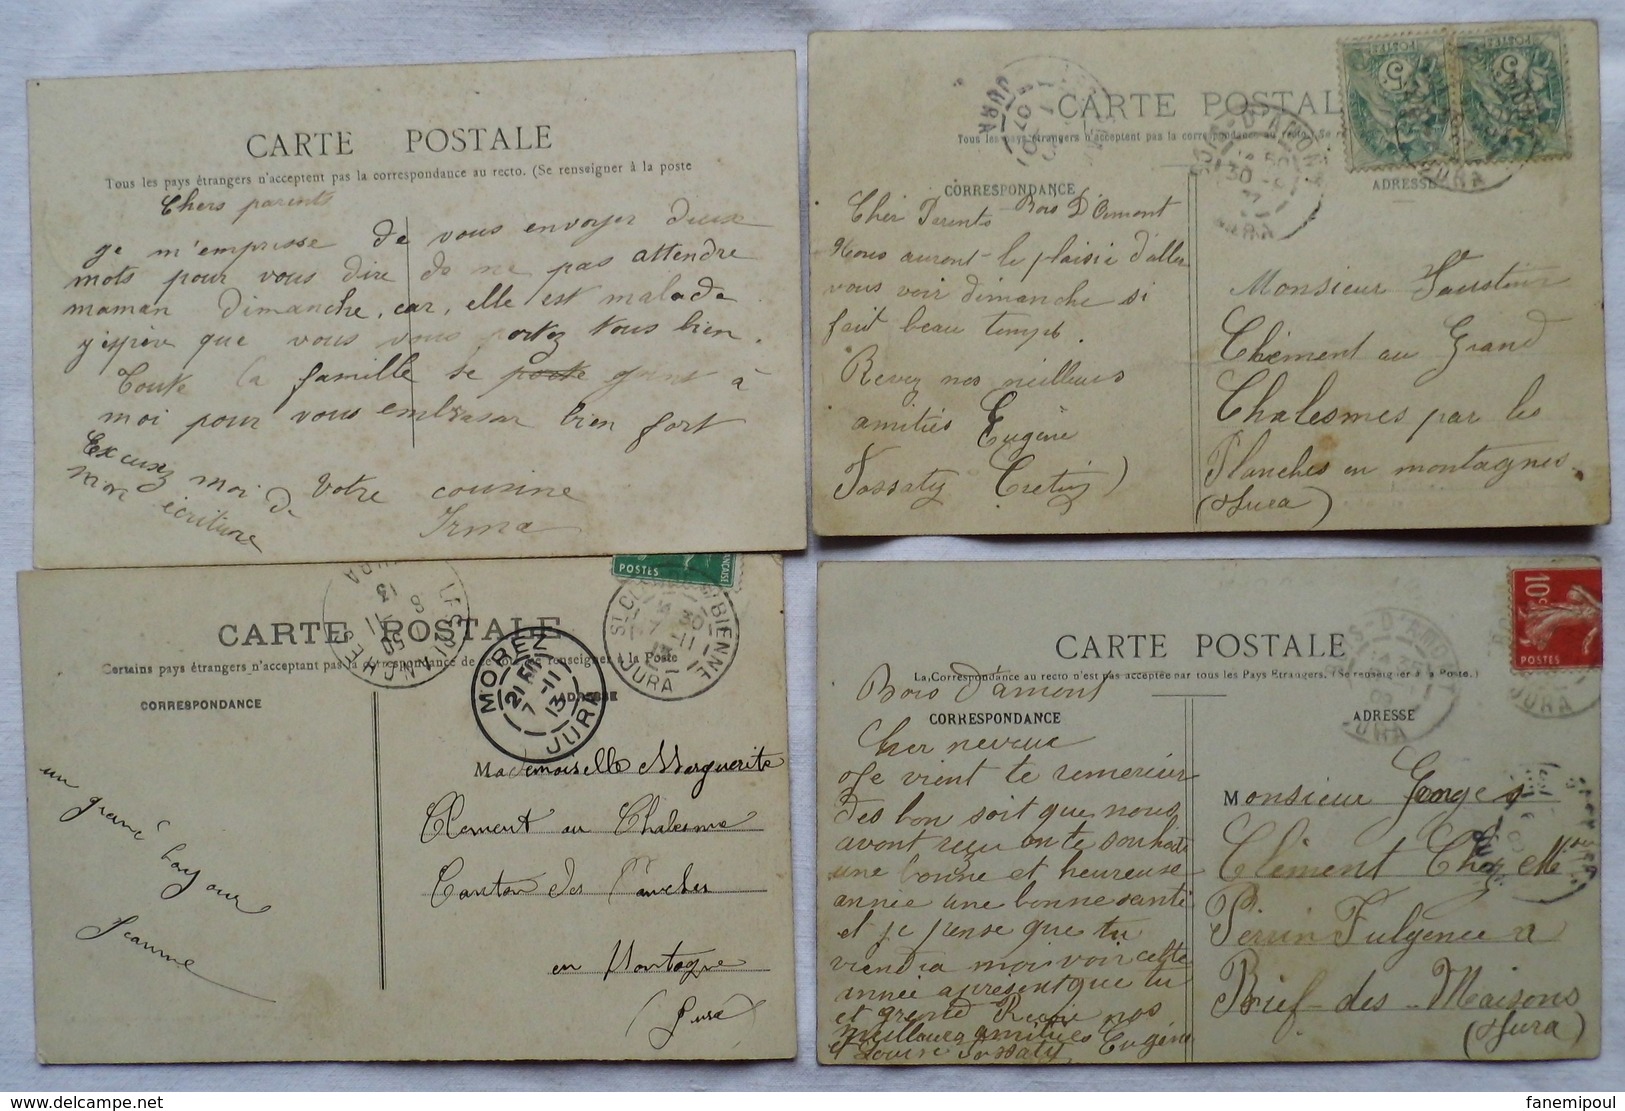 CARTE POSTALE
Tous les pays étrangers n'acceptent pas la correspondance au recto. (Se renseigner à la poste
Chers parents
je m'empresse de vous envoyer deux
mots pour vous dire de ne pas attendre
maman Dimanche, car, elle est malade
j'éspère que vous vous portez tous bien.
Toute la famille se porte joint à
moi pour vous embrasser bien fort
Excusez moi de
mon écriture
Votre cousine
Irma
JURA
CARTE POSTALE
Tous les pays étrangers n'acceptent pas la correspondance au recto (Se
POSTES 5
POSTES 5
JURA
JURA
CORRESPONDANCE
ADRESSE
Cher Parents Bois D'Amont
Nous auront le plaisie d'aller
vous voir dimanche si
fait beau temps.
Revez nos meilleurs
amitiés Eugène
Tossaty Cretin)
Monsieur Faustin
Clément au Grand
Chalesmes par les
Planches en montagnes.
(Jura)
CARTE POSTALE
Certains pays étrangers n'acceptent pas la correspondance de ce côté (se renseigner à la Poste
POSTES
JURA
13
8
50
MOREZ
21
7-11
13
JURA
BIENNE
JURA
CORRESPONDANCE
ADRESSE
un grand bonjour
Jeanne
Mademoiselle Marguerite
Clement au Chalesme
Canton des Planches
en Montagne
(Jura)
CARTE POSTALE
La Correspondance au recto n'est pas acceptée par tous les Pays Etrangers. (Se renseigner à la Poste.)
10c
POSTES
JURA
CORRESPONDANCE
ADRESSE
Bois d'amont
Cher neveue
Je vient te remercier
des bon soit que nous
avont reçu on te souhaite
une bonne et heureuse
année une bonne santé
et je pense que tu
viendra moi voir cette
année apresent que tu
et grend Recoi nos
meilleures amitiées Eugène
et Louise Tossaty
Monsieur Georges
Clément Chez Mr
Perrin Fulgence a
Brief-des-Maisons
(Jura)
Delcampe.net
fanemipoul